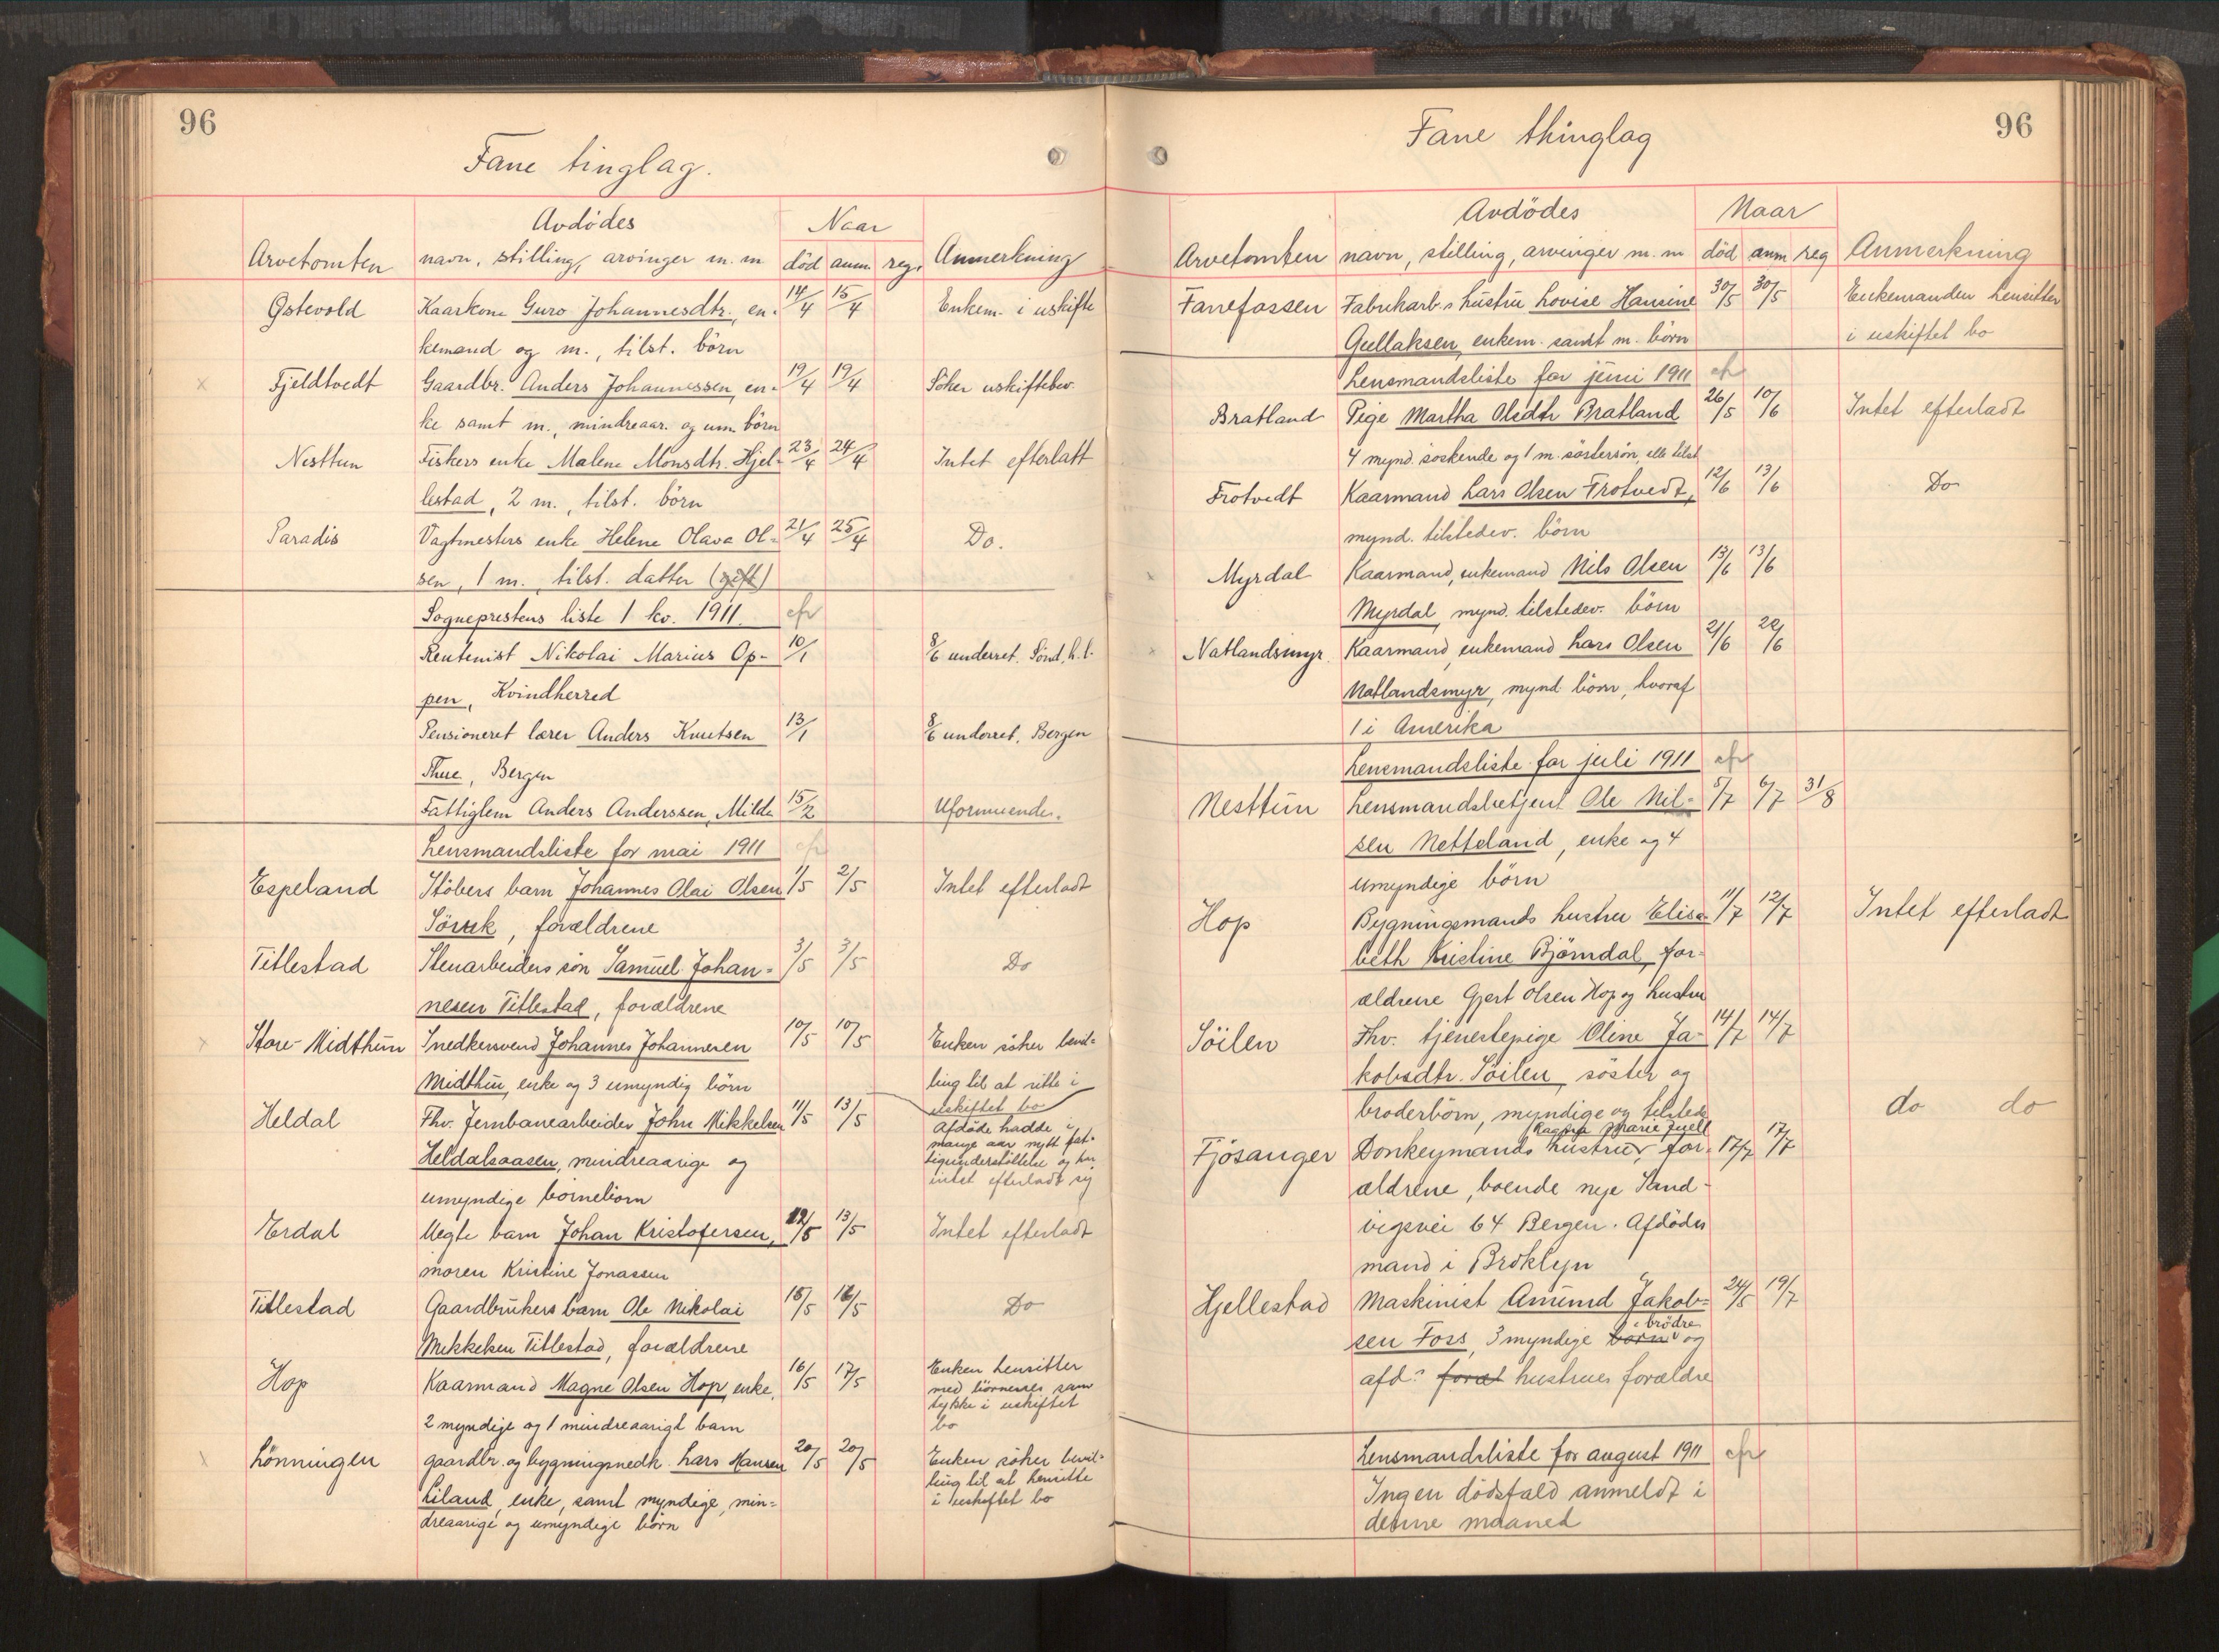 96
Fane tinglag.
Avdødes
Naar
Arvetomten navn, stilling, arvinger m. m død anm. reg. Anmerkning
Østevold Kaarkone Guro Johannesdtr., en- 14/4 15/4 Enkem. i uskifte
kemand og m., tilst. börn
x Fjeldtvedt Gaardbr. Anders Johannessen, en- 19/4 19/4 Söker uskiftebev.
ke samt m., mindreaar. og um. börn
Nesttun Fiskers enke Malene Monsdtr. Hjel- 23/4 24/4 Intet efterlatt
lestad, 2 m., tilst. börn
Paradis Vagtmesters enke Helene Olava Ol- 21/4 25/4 Do.
sen, 1 m., tilst. datter (gift)
Sogneprestens liste 1 kv. 1911. cfr
Rentenist Nikolai Marius Op- 10/1 8/6 underret. Sönd.h.l.
pen, Kvindherred
Pensioneret lærer Anders Knutsen 13/1 8/6 underret. Bergen
Thue, Bergen
Fattiglem Anders Anderssen, Milde 15/2 Uformuende.
Lensmandsliste for mai 1911 cfr
Espeland Stöbers barn Johannes Olai Olsen 1/5 2/5 Intet efterladt
forældrene
Titlestad Stenarbeiders sön Samuel Johan- 3/5 3/5 Do
nesen Titlestad, forældrene
x Store-Midthun Snedkersvend Johannes Johannesen 10/5 10/5 Enken söker bevil-
Midthun, enke og 3 umyndig börn ling til at sitte i
uskiftet bo
Heldal Fhv. Jernbanearbeider John Mikkelsen 11/5 13/5 Afdöde hadde i
mange aar nytt fat-
Heldalsaasen, mindreaarige og tigunderstöttelse og har
intet efterladt sig
umyndige börnebörn
Erdal Uegte barn Johan Kristofersen, 12/5 13/5 Intet efterladt
moren Kristine Jonassen
Titlestad Gaardbrukers barn Ole Nikolai 15/5 16/5 Do
Mikkelsen Titlestad, forældrene
Hop Kaarmand Magne Olsen Hop, enke, 16/5 17/5 Enken hensitter
med börnenes sam
2 myndige og 1 mindreaarigt barn tykke i uskiftet
bo
x Lönningen gaardbr. og bygningsnedk. Lars Hansen 20/5 20/5 Enken söker bevil-
ling til at hensitte
Liland, enke, samt myndige, min- i uskiftet bo
dreaarige og umyndige börn
96
Fane thinglag
Avdödes
Naar
Arvetomten navn, stilling, arvinger m. m död anm reg Anmerkning
Fanefossen Fabrikarb.s hustru Lovise Hansine 30/5 30/5 Enkemanden hensitter
Gullaksen, enkem. samt m. börn i uskiftet bo
Lensmandsliste for juni 1911 cfr
Bratland Pige Martha Olsdtr Bratland 26/5 10/6 Intet efterladt
4 mynd. söskende og 1 m. söstersön, alle tilst
Frotvedt Kaarmand Lars Olsen Frotvedt, 12/6 13/6 Do
mynd. tilstedev. börn
x Myrdal Kaarmand, enkemand Nils Olsen 13/6 13/6
Myrdal, mynd. tilstedev. börn
x Natlandsmyr. Kaarmand, enkemand Lars Olsen 21/6 22/6
Natlandsmyr, mynd. börn, hvoraf
1 i Amerika
Lensmandsliste for juli 1911 cfr
Nesttun Lensmandsbetjent Ole Nil- 5/7 6/7 31/8
sen Netteland, enke og 4
umyndige börn
Hop Bygningsmands hustru Elisa- 11/7 12/7 Intet efterladt
beth Kristine Björndal, for-
ældrene Gjert Olsen Hop og hustru
Söilen Fhv. tjenestepige Oline Ja- 14/7 14/7
kobsdtr. Söilen, söster og
broderbörn, myndige og tilstede do do
Marie Juell
Fjösanger Donkeymands hustru, for- 17/7 17/7
ældrene, boende nye Sand-
vigsvei 64 Bergen. Afdödes
mand i Broklyn
Hjellestad Maskinist Amund Jakob- 24/5 19/7
brödre
sen Foss, 3 myndige börn og
afd: foræl hustrues forældre
Lensmandsliste for august 1911 cfr
Ingen dödsfald anmeldt i
denne maaned